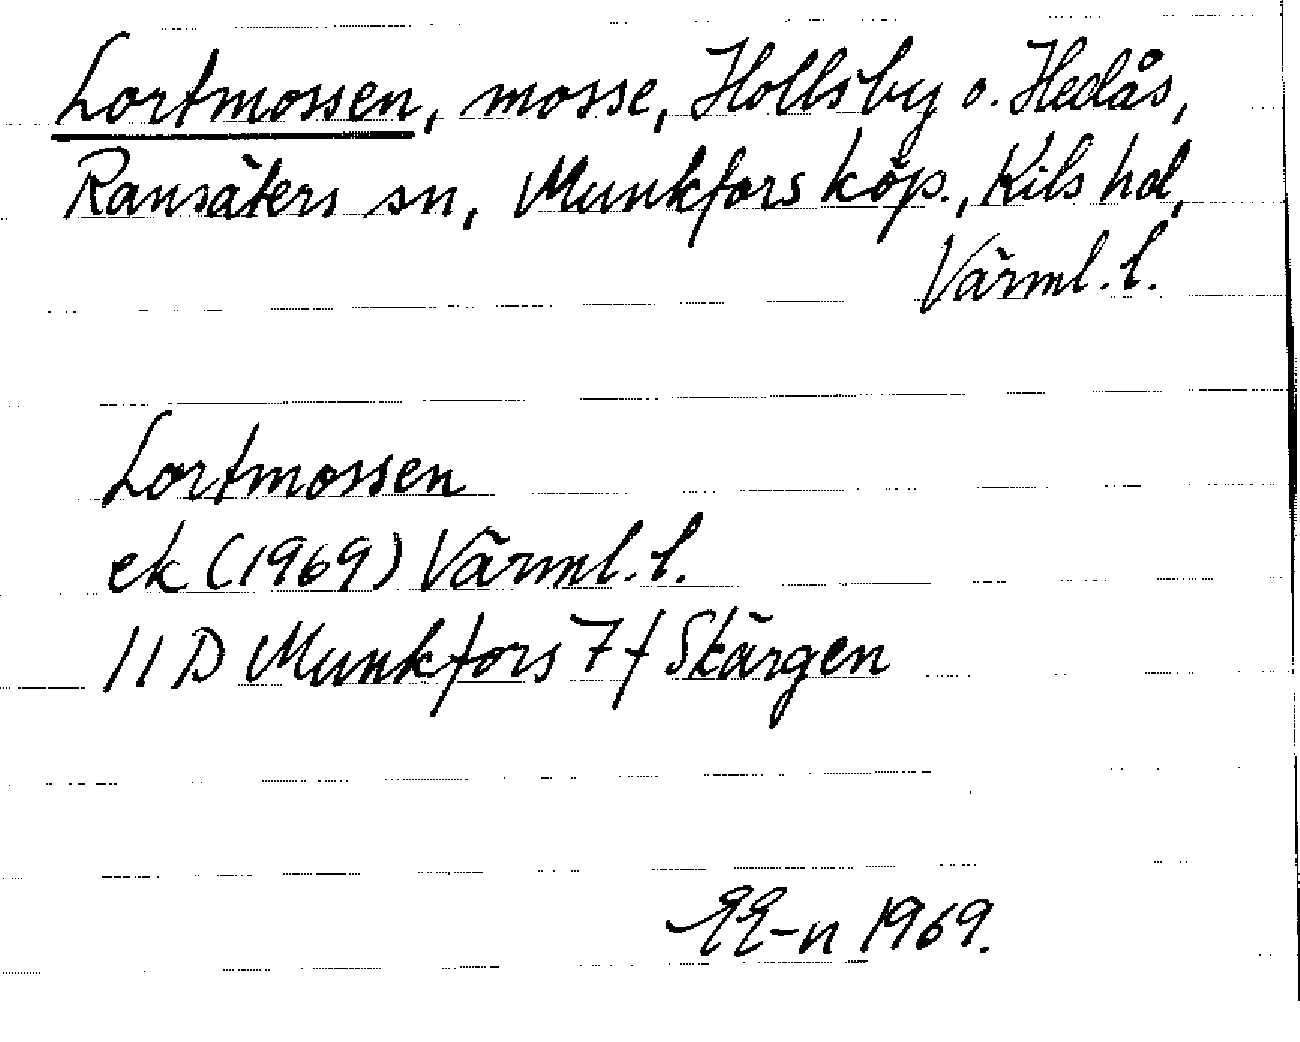 Lortmossen, mosse, Hollsby o. Hedås,
Ransäters sn, Munkfors köp., Kils hd,
Värml. l.
Lortmossen
ek (1969) Värml. l.
11 D Munkfors 7 f Skärgen
EE-n 1969.